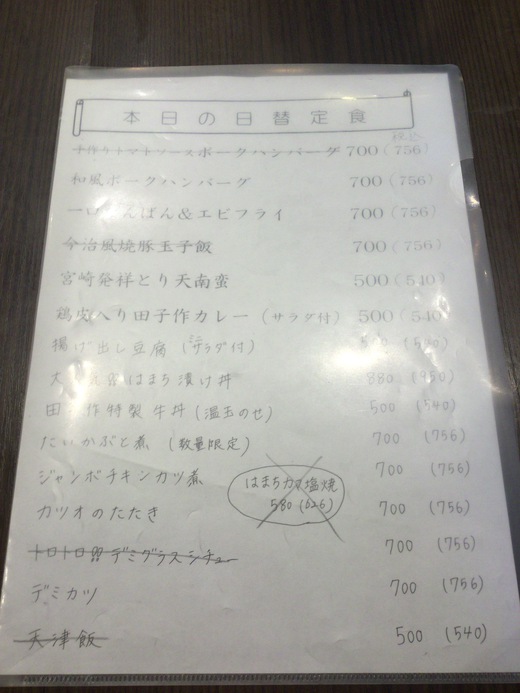 本日の日替定食
税込
手作りトマトソースポークハンバーグ 700(756)
和風ポークハンバーグ 700(756)
一口 &エビフライ 700(756)
今治風焼豚玉子飯 700(756)
宮崎発祥とり天南蛮 500(540)
鶏皮入り田子作カレー(サラダ付) 500(540)
揚げ出し豆腐(ミニサラダ付) (540)
はまち漬け丼 880(950)
田子作特製牛丼(温玉のせ) 500(540)
たいかぶと煮(数量限定) 700(756)
ジャンボチキンカツ煮 700(756)
はまちカマ塩焼
580(626)
カツオのたたき 700(756)
トロトロ デミグラスシチュー 700(756)
デミカツ 700(756)
天津飯 500(540)